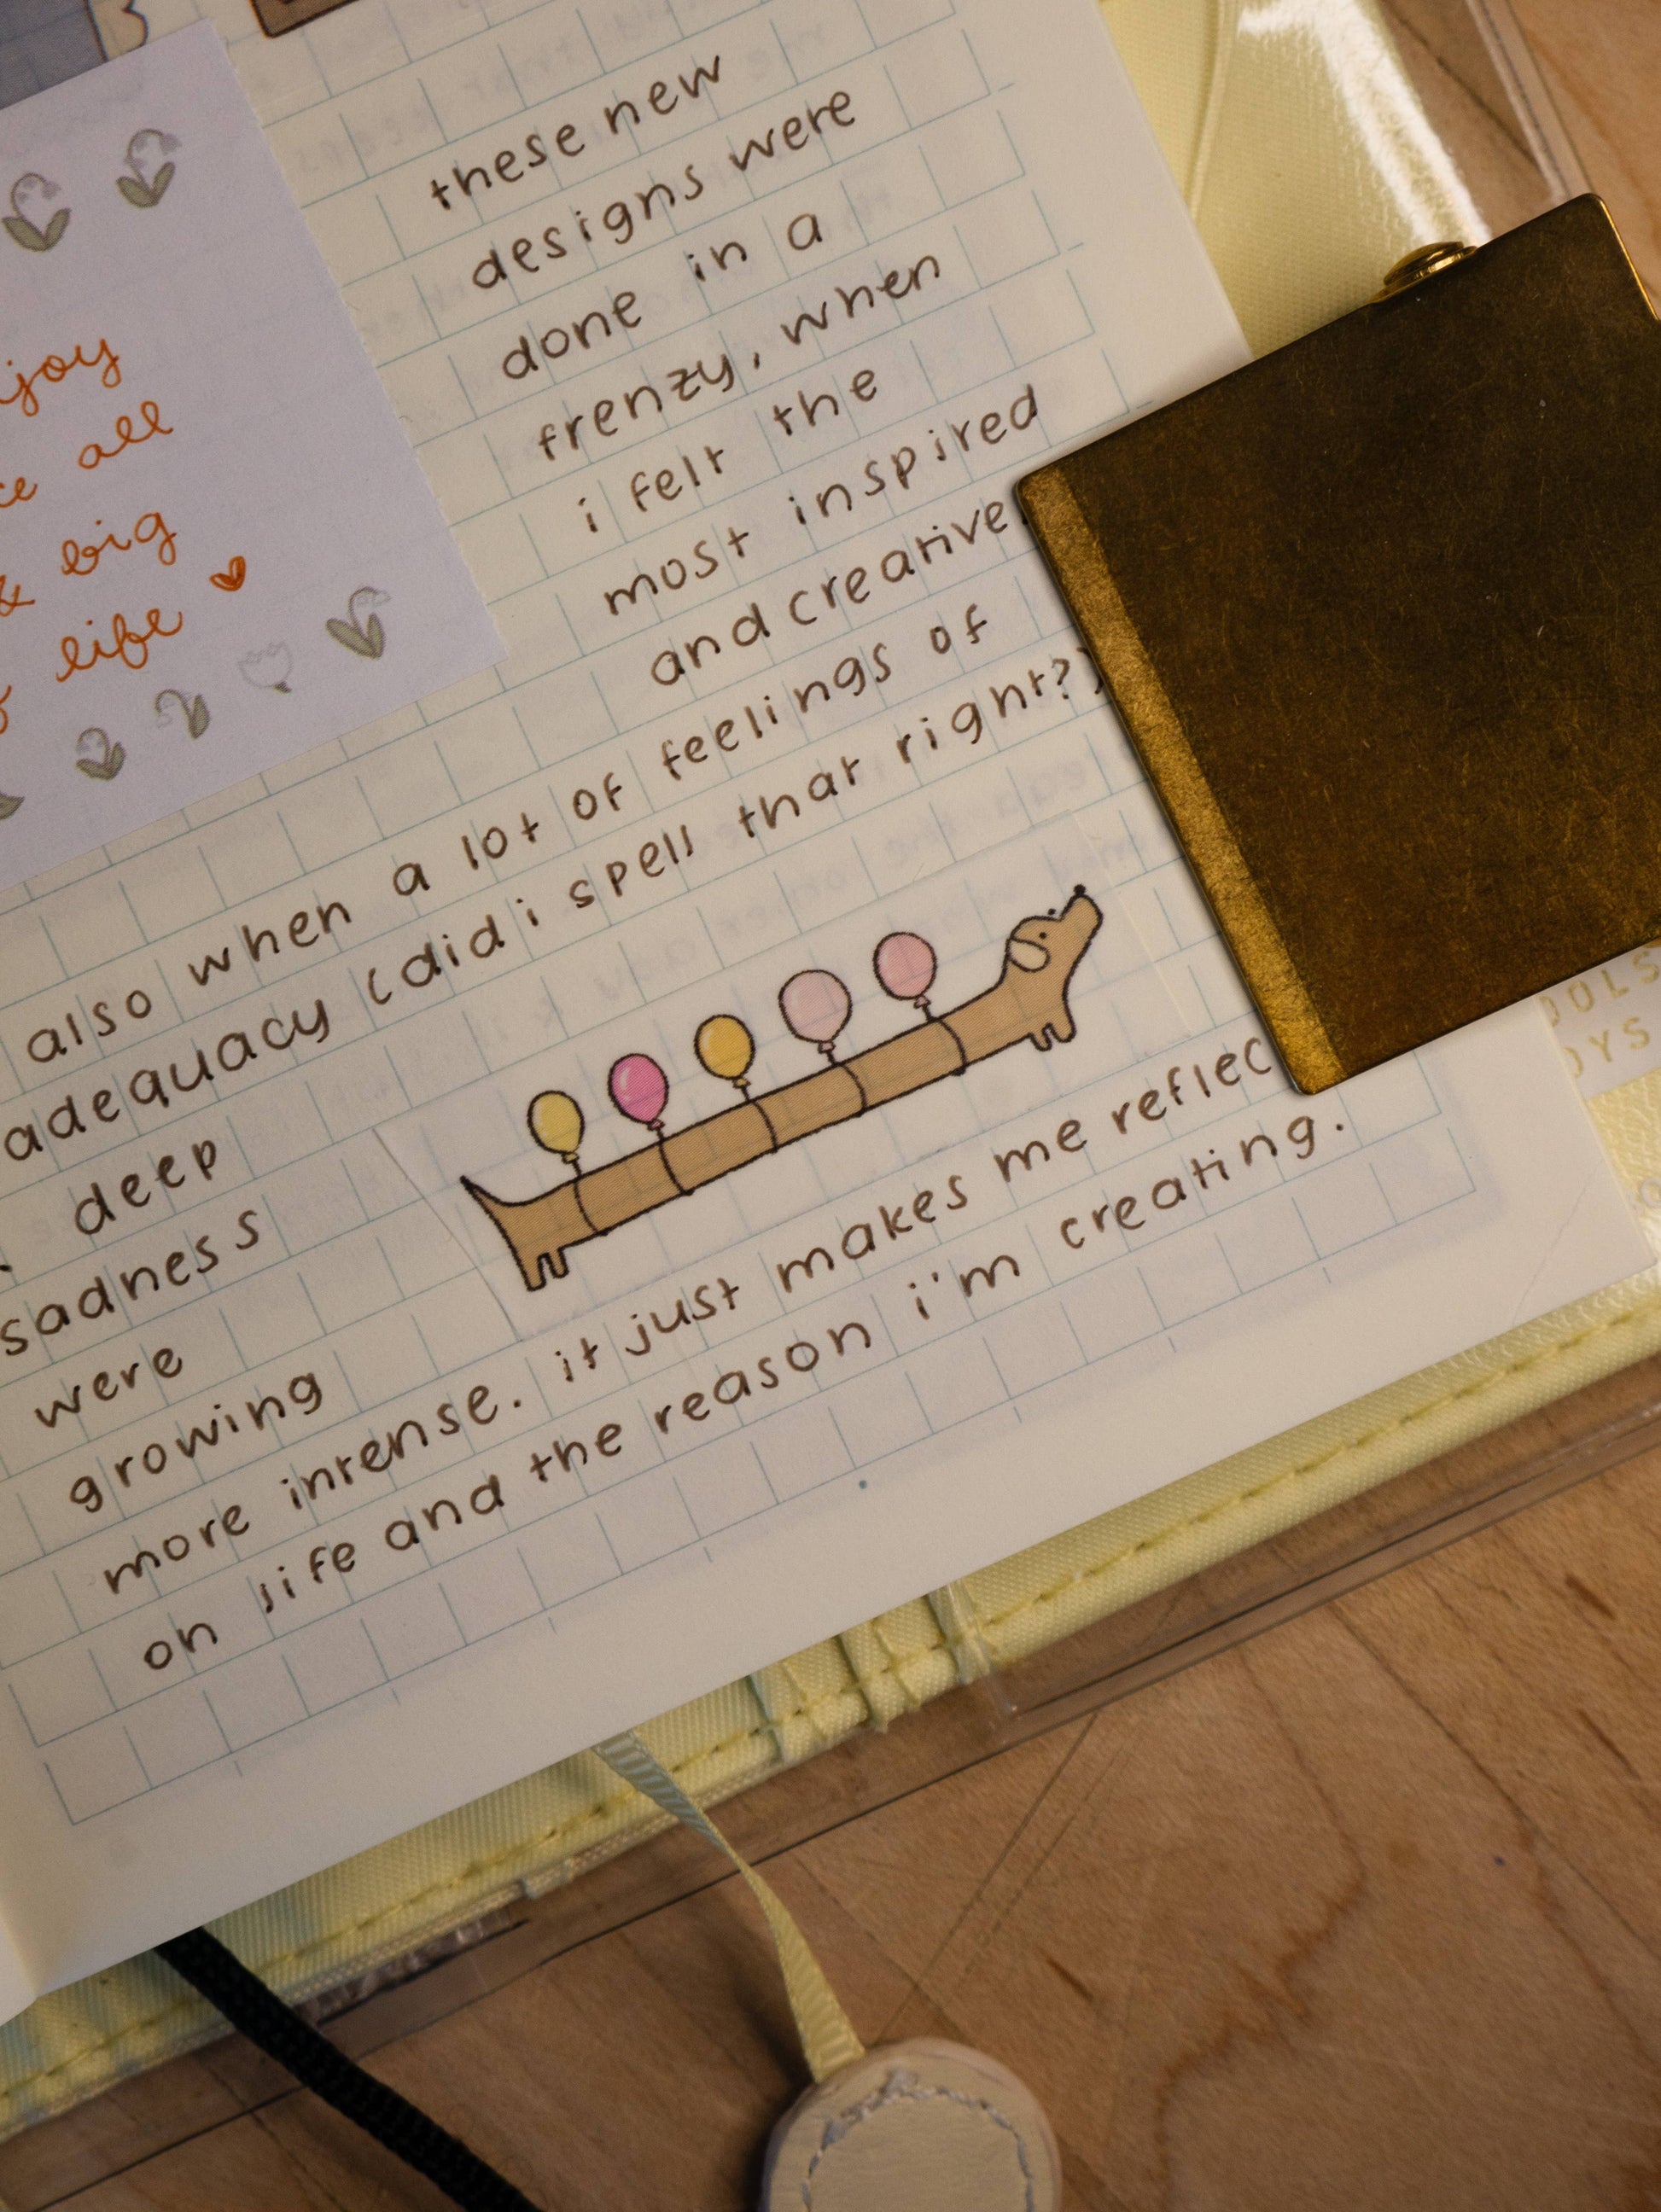 all
& big
life
these new
designs were
done in a
frenzy, when
i felt the
most inspired
and creative
also when a lot of feelings of
adequacy (did i spell that right?)
deep
sadness
were
growing
more intense. it just makes me reflec
on life and the reason i'm creating.